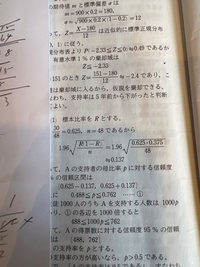 の期待値 m と標準偏差 σ は
m=900×0.2=180,
σ=√900×0.2(1−0.2)=12
って, Z=X−180/12 は近似的に標準正規分布
1)に従う。
分布表より P(−2.33≦Z≦0)≒0.49 であるか
有意水準1%の棄却域は
Z≦−2.33
=151のとき Z=151−180/12≒−2.4 であり,こ
棄却域に入るから,仮説を棄却できる。
わち,支持率は5年前から下がったと判断
よい。
(1) 標本比率を R とする。
30/48=0.625, n=48であるから
1.96√R(1−R)/n=1.96√0.625・0.375/48
≒0.137
て, Aの支持者の母比率 p に対する信頼度
の信頼区間は
[0.625−0.137, 0.625+0.137]
に 0.488≦p≦0.762 ……①
者1000人のうちAを支持する人数は 1000p
り,①の各辺を1000倍すると
488≦1000p≦762
て, Aの得票数に対する信頼度95%の信頼
[488, 762]
の支持率を
支持者の方が高いなら, p>0.5である。